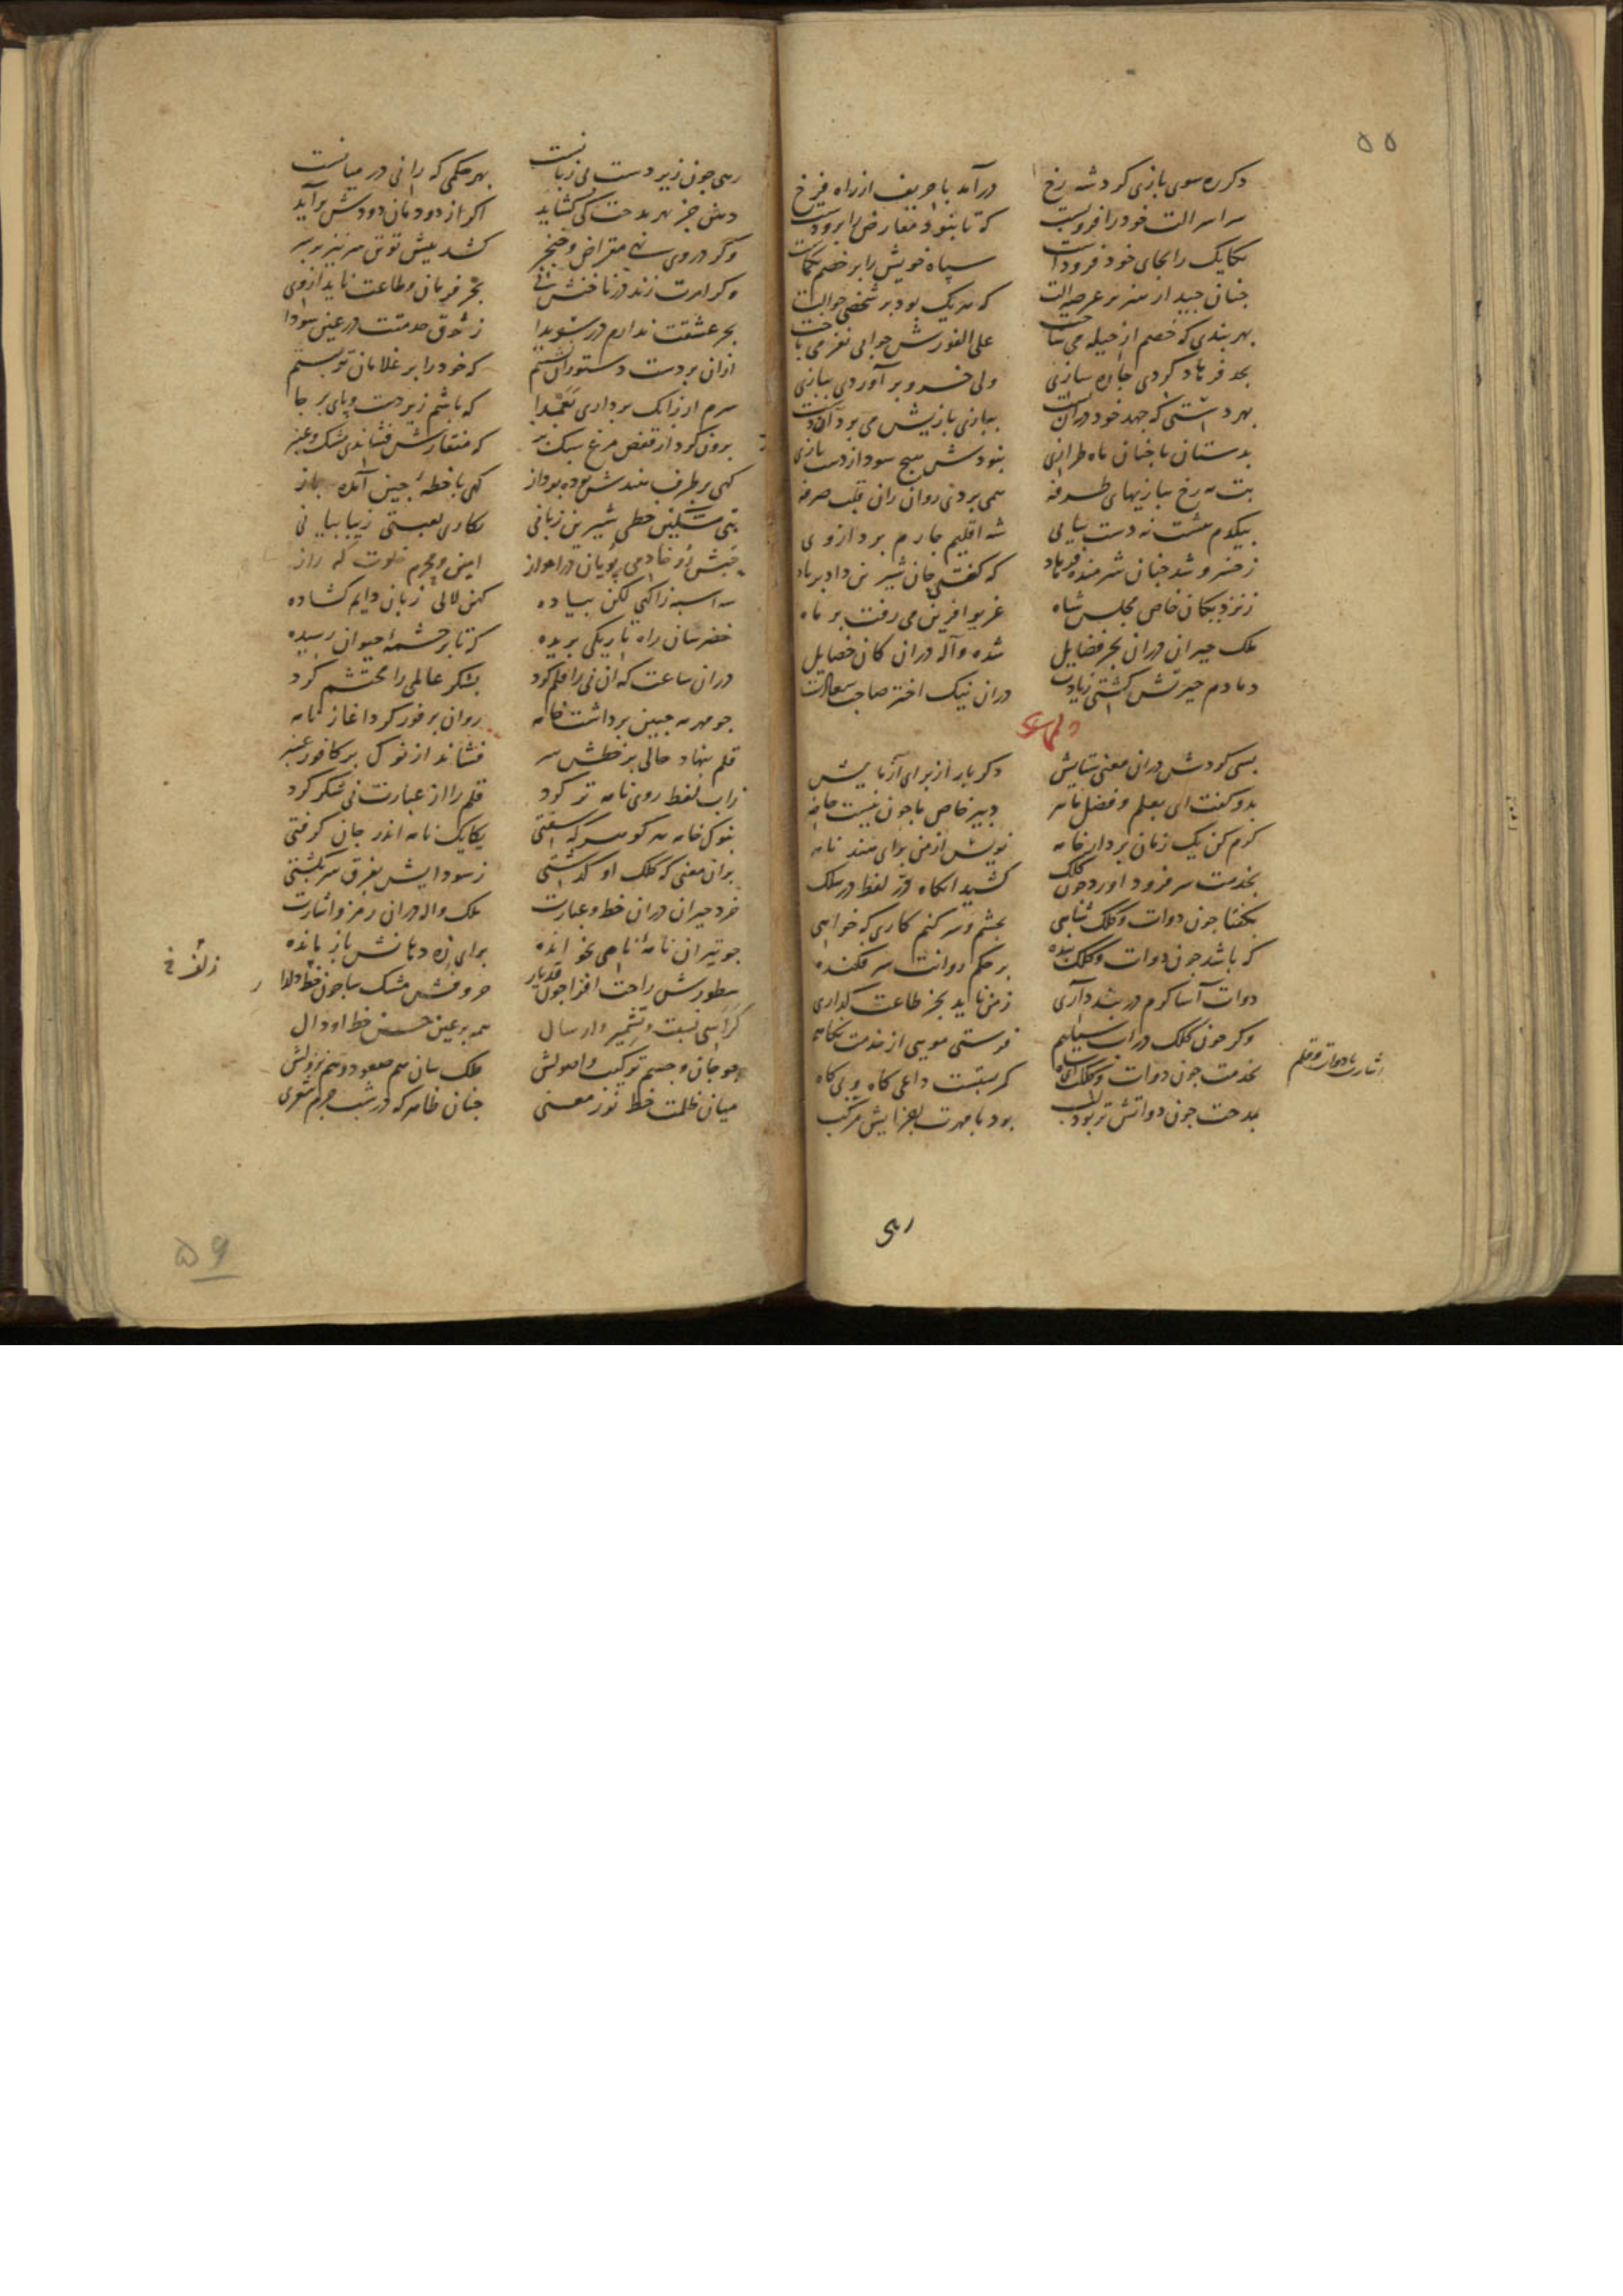 ۵۵
دکر ره سوی بازی کرد شه رخ
درآمد با حریف از راه فرخ
سراسر الت خود را فرو بست
که تا بنود معارض را برو دست
یکایک را بجای خود فرو داشت
سپاه خویش را بر خصم بکماشت
جنان جید از سنر بر عرصه الت
که هر یک بود بر شخصی حوالت
بهر بندی که خصم از حیله می ساخت
علی الفورش جوابی نغز می باخت
بجد فرهاد کردی جاره سازی
ولی خسرو بر آوردی ببازی
بهر دشتی که جهد خود دران
ببازی بازیش می برد
بدستان با جنان ماه طرازی
بنودش هیچ سود از دست بازی
بت مه رخ ببازیهای طرفه
همی بردی روان زان قلب صرفه
بیکدم هشت نه دست بیاپی
شه اقلیم جارم برد از وی
ز خسرو شد جنان شرمنده فرهاد
که کفتی جان شیرین داد بر باد
ز نزدیکان خاص مجلس شاه
غریو افرین می رفت بر ماه
ملک حیران دران بحر فضایل
شده واله دران کان خصایل
دمادم حیرتش کشتی زیادت
دران نیک اختر صاحب سعادت
بسی کردش دران معنی ستایش
دکر بار از برای آزمایش
بدو کفت ای بعلم و فضل ماهر
دبیر خاص ما جون نیست حاضر
کرم کن یک زمان بردار خامه
نویس از من برای هند نامه
بخدمت سر فرود اورد جون کلک
کشید انکاه در لفظ در سلک
بکفتا جون دوات و کلک شاهی
بجشم و سر کنم کاری که خواهی
که باشد جون دوات و کلک بنده
بر حکم روانت سر فکنده
دوات آسا کرم در بند داری
ز من ناید بجز طاعت کذاری
وکر جون کلک در آب سیاهم
فرستی مویی از خدمت نکاهم
بخدمت جون دوات و کلک
کمر بستست داعی کاه و بی کاه
بمدحت جون دواتش تر بود لب
بود با مهرت اجزایش مرکب
اشارت بادوات و قلم
رهی
رهی جون زیر دست بی زبانست
بهر حکمی که رانی در میانست
دهن جز بهر مدحت کی کشاید
اکر از دودمان دودش برآید
وکر در وی نهی مقراض و خنجر
کشد پیش تو تن سر نیز بر سر
وکر امرت زند در ناخنش نی
بجز فرمان و طاعت ناید از وی
بجز عشقت ندارم در سویدا
ز شوق خدمتت در عین سودا
ازان بر دست دستوران نشستم
که خود را بر غلامان تو بستم
سرم ار زانک برداری تعمدا
که باشم زیر دست و پای بر جا
برون کرد از قفص مرغ سبک بر
که منقارش فشاندی مشک و عنبر
کهی بر طرف هندش بوده برواز
کهی با خطه جینی آمده باز
بتی مشکین خطی شیرین زبانی
نکاری لعبتی زیبا بیانی
حبش رو خادمی پویان در اهواز
امین و محرم خلوت که راز
سه اسبه زاکهی لکن بیاده
کهن لالی زبان دایم کشاده
خضر سان راه تاریکی بریده
که تا بر جشمه حیوان رسیده
دران ساعت که آن نی را قلم کرد
بشکر عالمی را محتشم کرد
جو مهر مه جبین برداشت خامه
روان بر فور کرد اغاز نامه
قلم بنهاد حالی بر خطش سر
فشاند از نوک بر کافور عنبر
ز آب لفظ روی نامه تر کرد
قلم را از عبارت نی شکر کرد
بنوک خامه هر کوهر که سفتی
یکایک نامه اندر جان کرفتی
بران معنی که کلک او کذشتی
ز سودایش بفرق سر بکشتی
خرد حیران دران خط و عبارت
ملک واله دران رمز و اشارت
جو تیر ان نامه نامی بخوانده
برای زه دهانش باز مانده
سطورش راحت افزا جون قد یار
حروفش مشک سا جون خط دلدار
زلف خ
کراسی بست و تشمیر و ارسال
همه بر عین حسن خط او دال
جو جان و جسم ترکیب و اصولش
ملک سان هم صعود و هم نزولش
میان ظلمت خط نور معنی
جنان ظاهر که در شب جرم شعری
۵۶